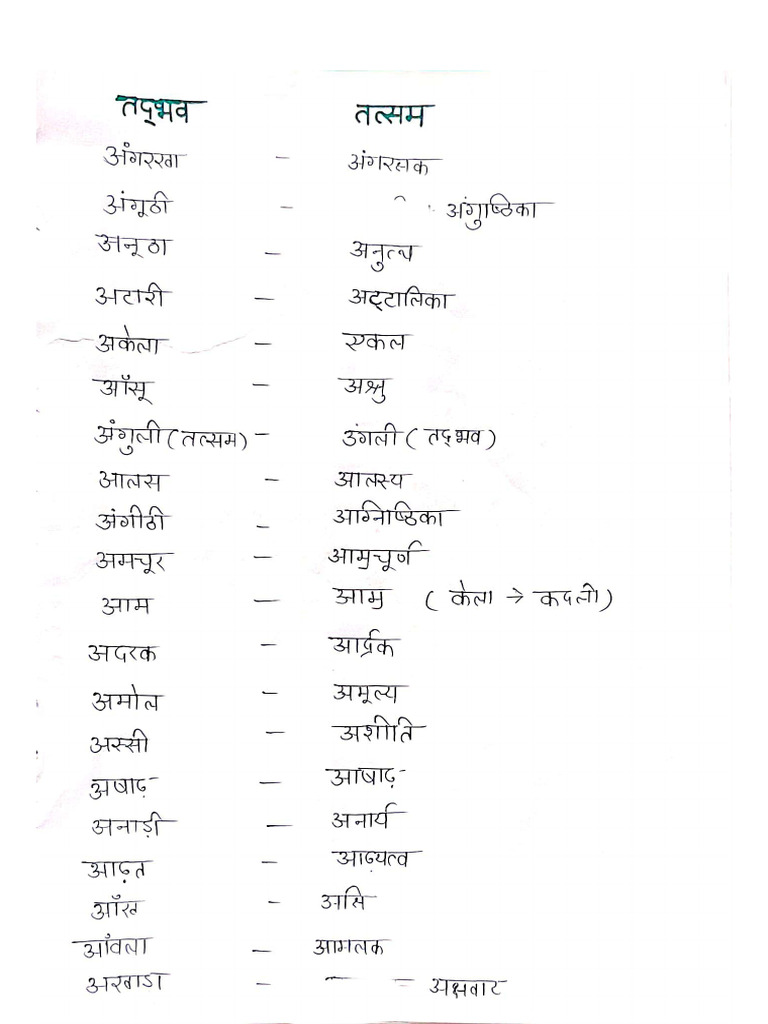 तद्भव तत्सम
अंगरखा - अंगरक्षक
अंगूठी - अंगुष्ठिका
अनूठा - अनुत्थ
अटारी - अट्टालिका
अकेला - एकल
आँसू - अश्रु
अंगुली (तत्सम) - उंगली (तद्भव)
आलस - आलस्य
अंगीठी - अग्निष्ठिका
अमचूर - आम्रचूर्ण
आम - आम्र (केला → कदली)
अदरक - आर्द्रक
अमोल - अमूल्य
अस्सी - अशीति
अषाढ़ - आषाढ़
अनाड़ी - अनार्य
आढ़त - आढ्यत्व
आँख - अक्षि
आँवला - आमलक
अखाडा - अक्षवाट